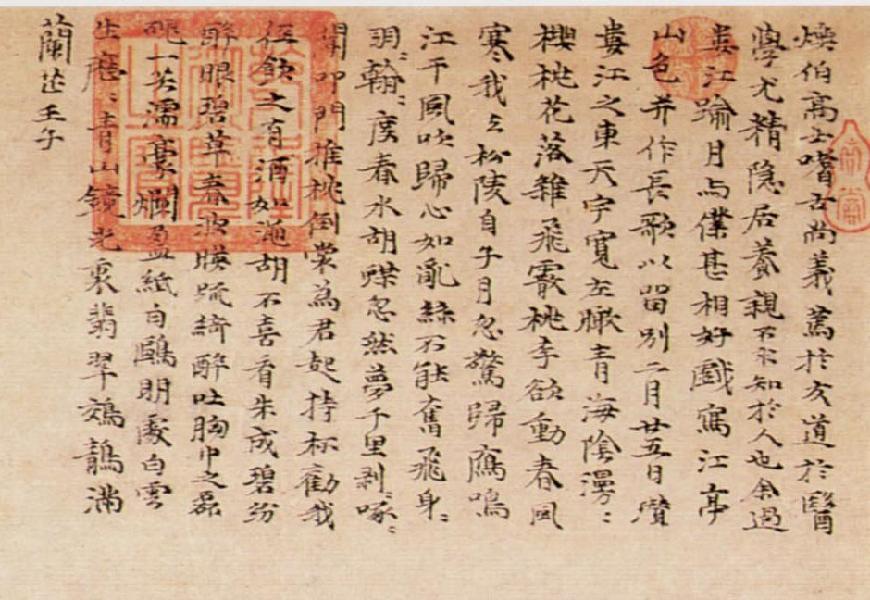 煥伯高士嗜古尚義篤於友道於醫
學尤精隱居養親不求知於人也余過
婁江踰月与僕甚相好戲寫江亭
山色并作長歌以留別二月廿五日瓚
婁江之東天宇寬左瞰青海陰漫〻
櫻桃花落雜飛霰桃李欲動春風
寒我立松陵自子月忽驚歸鴈鳴
江干風吹歸心如亂絲不能奮飛身〻
羽翰〻度春水胡蝶忽然夢千里剥〻啄〻
聞叩門推枕倒裳為君起持杯勸我
徑飲之有酒如澠胡不喜看朱成碧紛
醉眼碧草春波映疏綺醉吐胸中之磊
磈一若濡豪爛盈紙白鷗明處白雲
生歷〻青山鏡光裏翡翠鵁鶄滿
蘭芷壬子